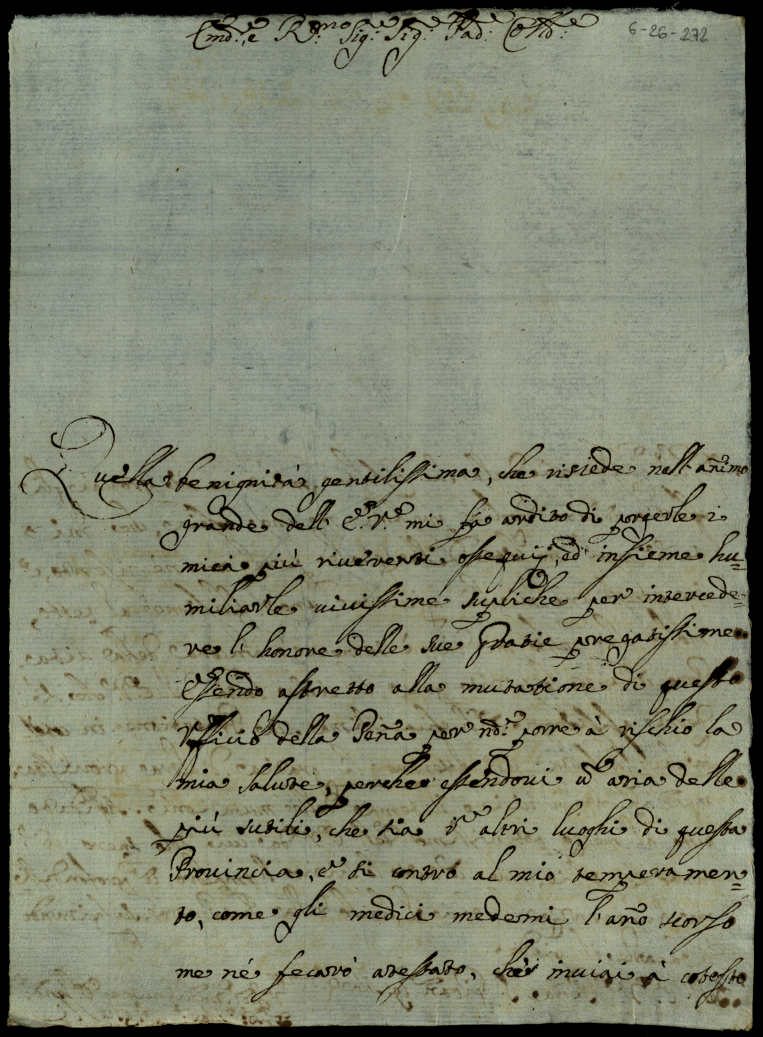 Em.e e R.mo Sig.e Sig.e Pad.e Coll.e
6-26-272
Quella benignità gentilissima, che risiede nell'animo
grande dell' E.V. mi fà ardito di porgerle i
miei più riverenti ossequij, ed insieme hu=
miliarle vivissime supliche per intercede=
re l'honore delle sue Gratie pregatissime
essendo astretto alla mutatione di questo
Ufficio della Peña per nõ porre à rischio la
mia salute, perche essendovi ũ aria delle
più sutili, che sia ĩ altri luoghi di questa
Provincia, e si contro al mio temperamen=
to, come gli medici medemi l'año scorso
me né fecaró atestato, che inviai à cotesto